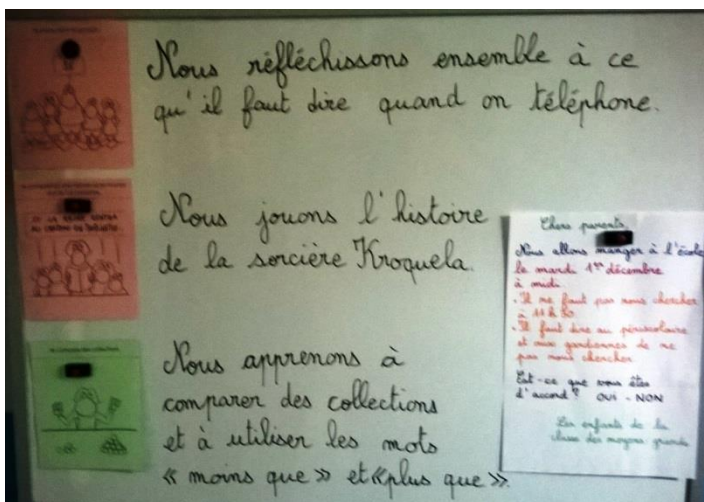 Nous réfléchissons ensemble à ce
qu'il faut dire quand on téléphone.
Nous jouons l'histoire
de la sorcière Kroquela.
Nous apprenons à
comparer des collections
et à utiliser les mots
« moins que » et « plus que ».
Chers parents,
Nous allons manger à l'école
le mardi 1er décembre
à midi.
- Il ne faut pas nous chercher
à 11 h 30
- Il faut dire au périscolaire
et aux gardiennes de ne
pas nous chercher
Est-ce que vous êtes
d'accord ? OUI - NON
Les enfants de la
classe des moyens grands